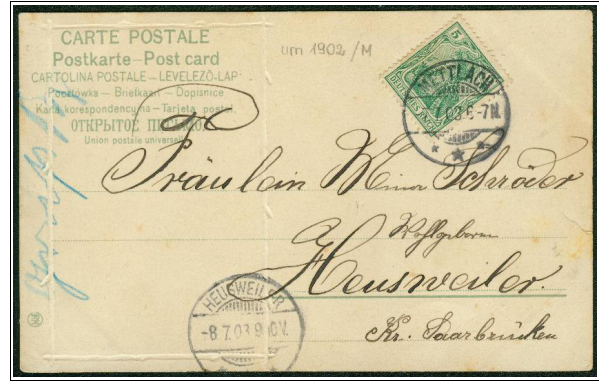 CARTE POSTALE
Postkarte – Post card
CARTOLINA POSTALE – LEVELEZÖ-LAP
Pocztówka – Briefkaart – Dopisnice
Karta korespondencyjna – Tarjeta postal
ОТКРЫТОЕ ПИСЬМО
Union postale universelle
um 1902/M
5
METTLACH
7.03 6-7N.
An
Fräulein Mina Schröder
Wohlgeboren
Heusweiler.
Kr. Saarbrücken
HEUSWEILER
-8.7.03 9-10V.